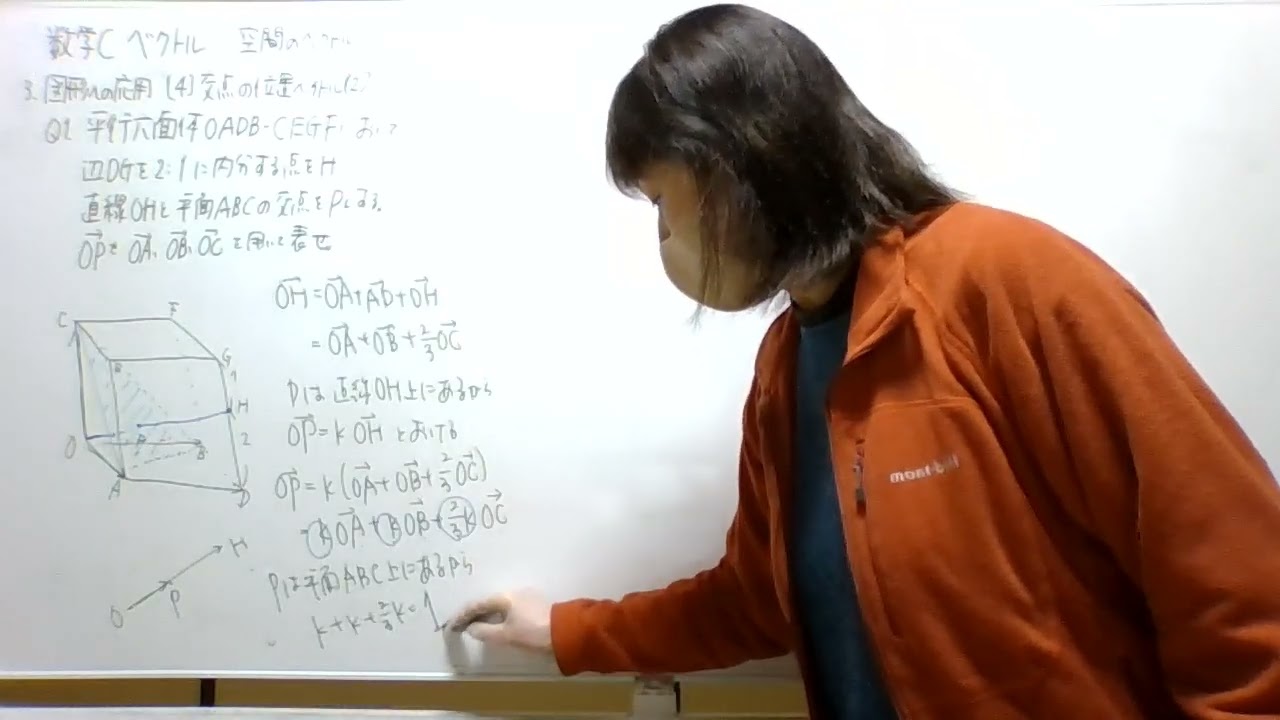 数学C ベクトル 空間のベクトル
3. 図形への応用 [4] 交点の位置ベクトル(2)
Q1 平行六面体OADB-CEGFにおいて
辺DGを2:1に内分する点をH
直線OHと平面ABCの交点をPとする。
OP→を OA→, OB→, OC→を用いて表せ
OH→=OA→+AD→+DH→
=OA→+OB→+2/3OC→
Pは直線OH上にあるから
OP→=kOH→とおける
OP→=k(OA→+OB→+2/3OC→)
=kOA→+kOB→+2/3kOC→
Pは平面ABC上にあるから
k+k+2/3k=1
C
F
G
1
H
2
O
P
B
A
D
H
P
O
mont-bell